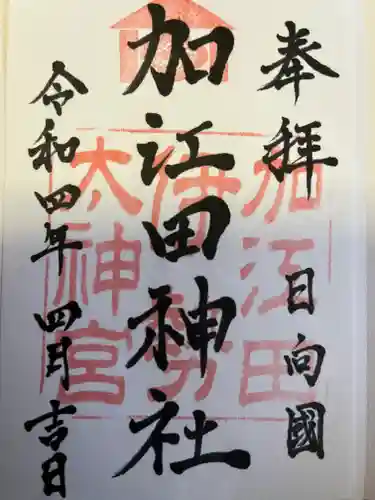 奉拝
日向國
加江田神社
令和四年四月吉日
加江田
伊勢
太神宮